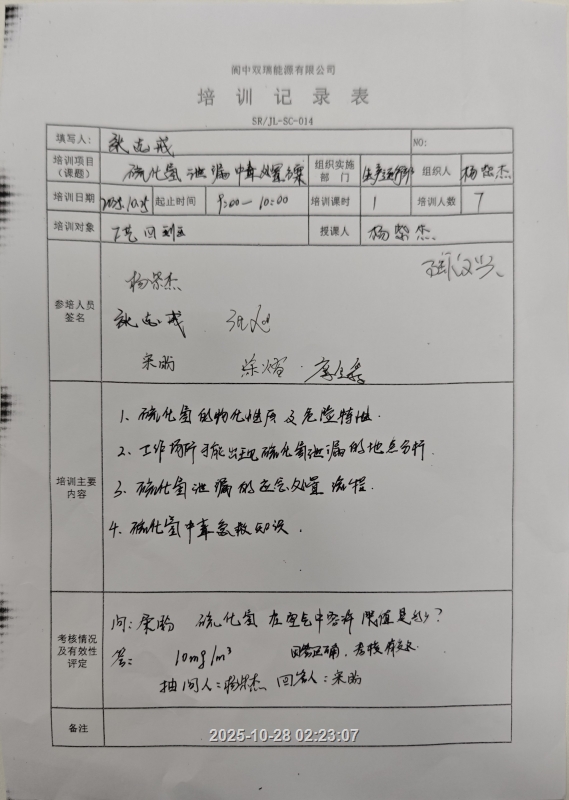 阆中双瑞能源有限公司
培 训 记 录 表
SR/JL-SC-014
填写人: NO:
培训项目(课题) 硫化氢泄漏中毒处置 组织实施部 门 生产运行部 组织人 杨紫杰
培训日期 2025.10.25 起止时间 9:00—10:00 培训课时 1 培训人数 7
培训对象 授课人 杨紫杰
参培人员签名
杨紫杰
宋瀚 涂熠
培训主要内容
1、硫化氢的物化性质及危险特性.
2、工作场所可能出现硫化氢泄漏的地点分析.
3、硫化氢泄漏的应急处置流程.
4、硫化氢中毒急救知识.
考核情况及有效性评定
问: 宋瀚 硫化氢在空气中容许限值是多少?
答: 10mg/m³ 回答正确,考核有效.
抽问人:杨紫杰 回答人:宋瀚
备注
2025-10-28 02:23:07